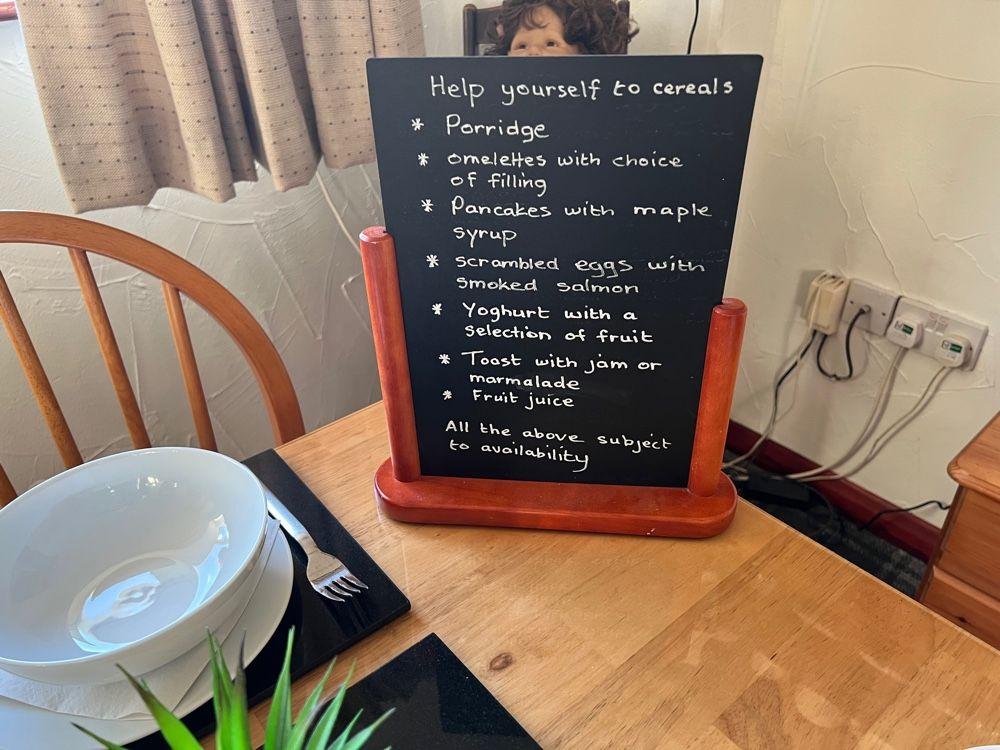 Help yourself to cereals
* Porridge
* omelettes with choice
of filling
* Pancakes with maple
syrup
* scrambled eggs with
smoked salmon
* Yoghurt with a
selection of fruit
* Toast with jam or
marmalade
* Fruit juice
All the above subject
to availability